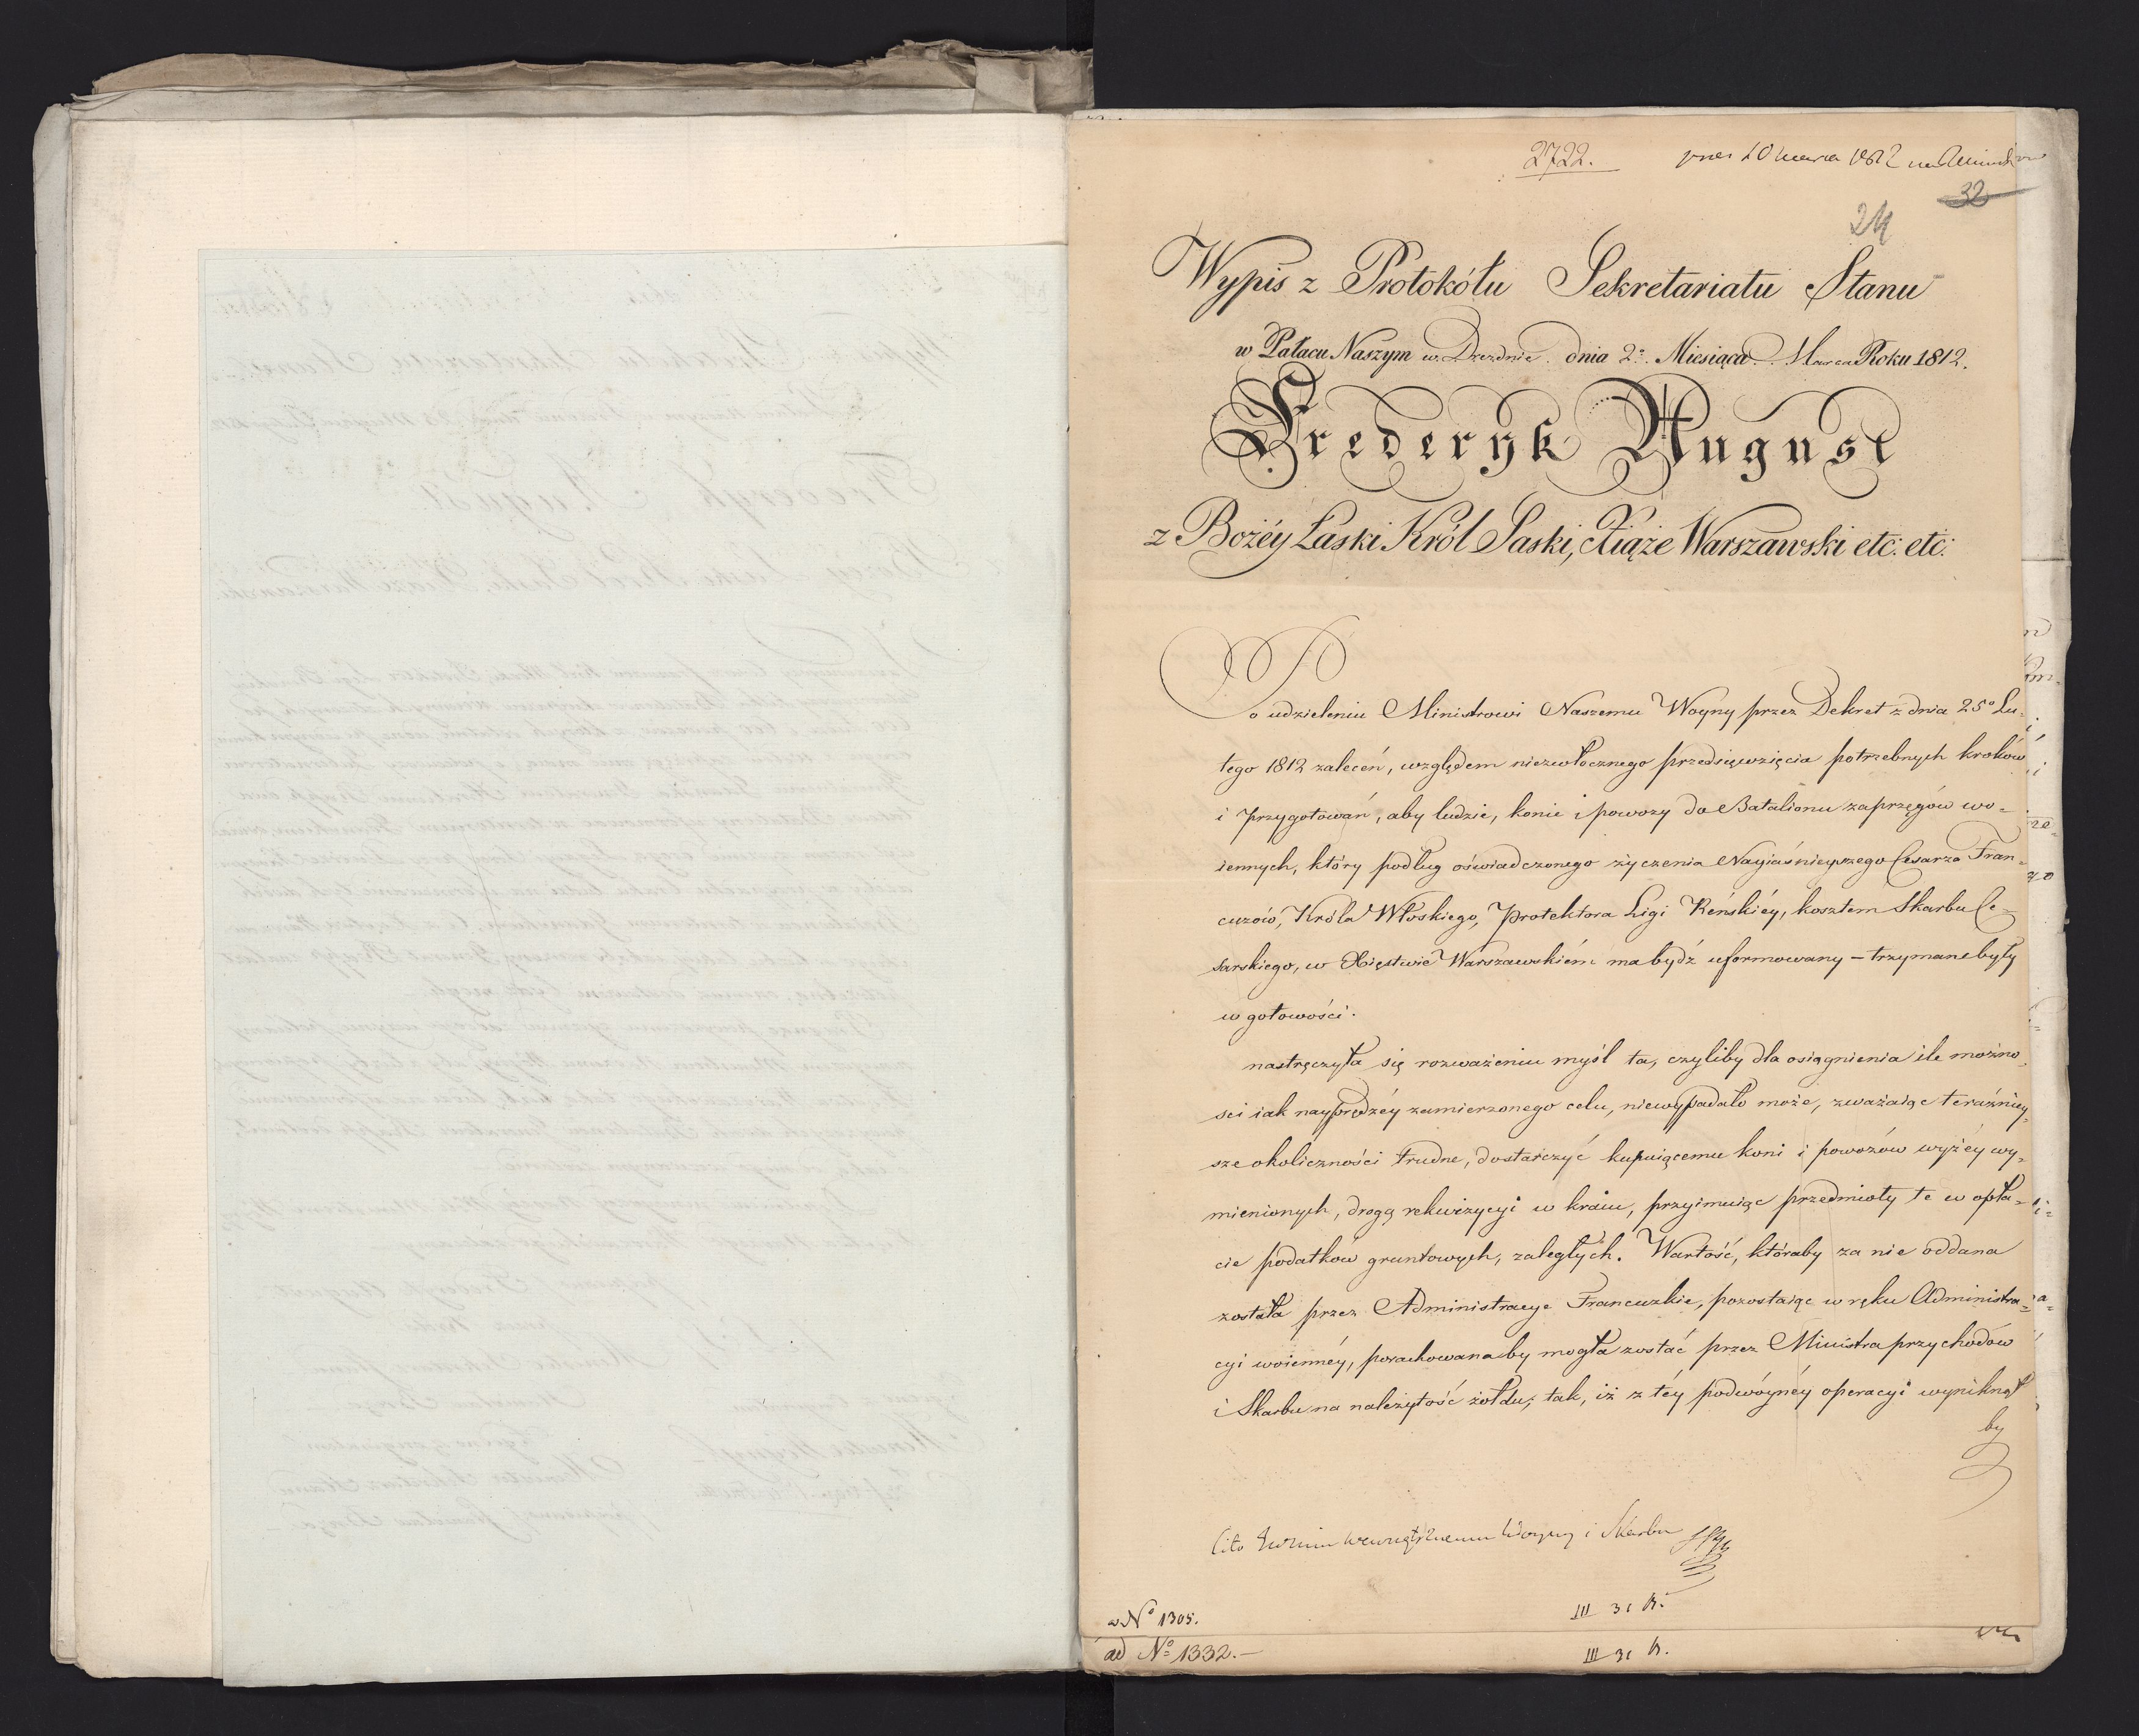 2722.
32
24
Wypis z Protokółu Sekretariatu Stanu
w Pałacu Naszym w Dreźnie dnia 2º Miesiąca Marca Roku 1812.
Frederyk August
z Bożéy Łaski Król Saski, Xiąże Warszawski etc: etc:
Po udzieleniu Ministrowi Naszemu Woyny przez Dekret z dnia 25º Lu-
tego 1812 zaleceń, względem niezwłocznego przedsięwzięcia potrzebnych kroków
i przygotowań, aby ludzie, konie i powozy do Batalionu zaprzęgów wo-
iennych, który podług oświadczonego życzenia Nayiaśnieyszego Cesarza Fran-
cuzów, Króla Włoskiego, Protektora Ligi Reńskiéy, kosztem Skarbu Ce-
sarskiego, w Xięstwie Warszawskiém ma bydź uformowany – trzymane były
w gotowości.
nastręczyła się rozważeniu myśl ta, czyliby dla osiągnienia ile możno-
sci iak nayprędzéy zamierzonego celu, niewypadało może, zważaiąc teraźniey-
sze okoliczności trudne, dostarczyć kupuiącemu koni i powozów wyżéy wy-
mienionych, drogą rekwizycyi w kraiu, przyimuiąc przedmioty te w opła-
cie podatków gruntowych, zaległych. Wartość, któraby za nie oddana
została przez Administracye Francuzkie, pozostaiąc w ręku Administra-
cyi woiennéy, porachowanaby mogła zostać przez Ministra przychodów
i Skarbu na należytość żołdu, tak, iż z téy podwóyney operacyi wyniknął
by
Cito wewnętrznemu Woyny i Skarbu
a Nº 1305.
III 31 B.
ad Nº 1332.–
III 31 B.